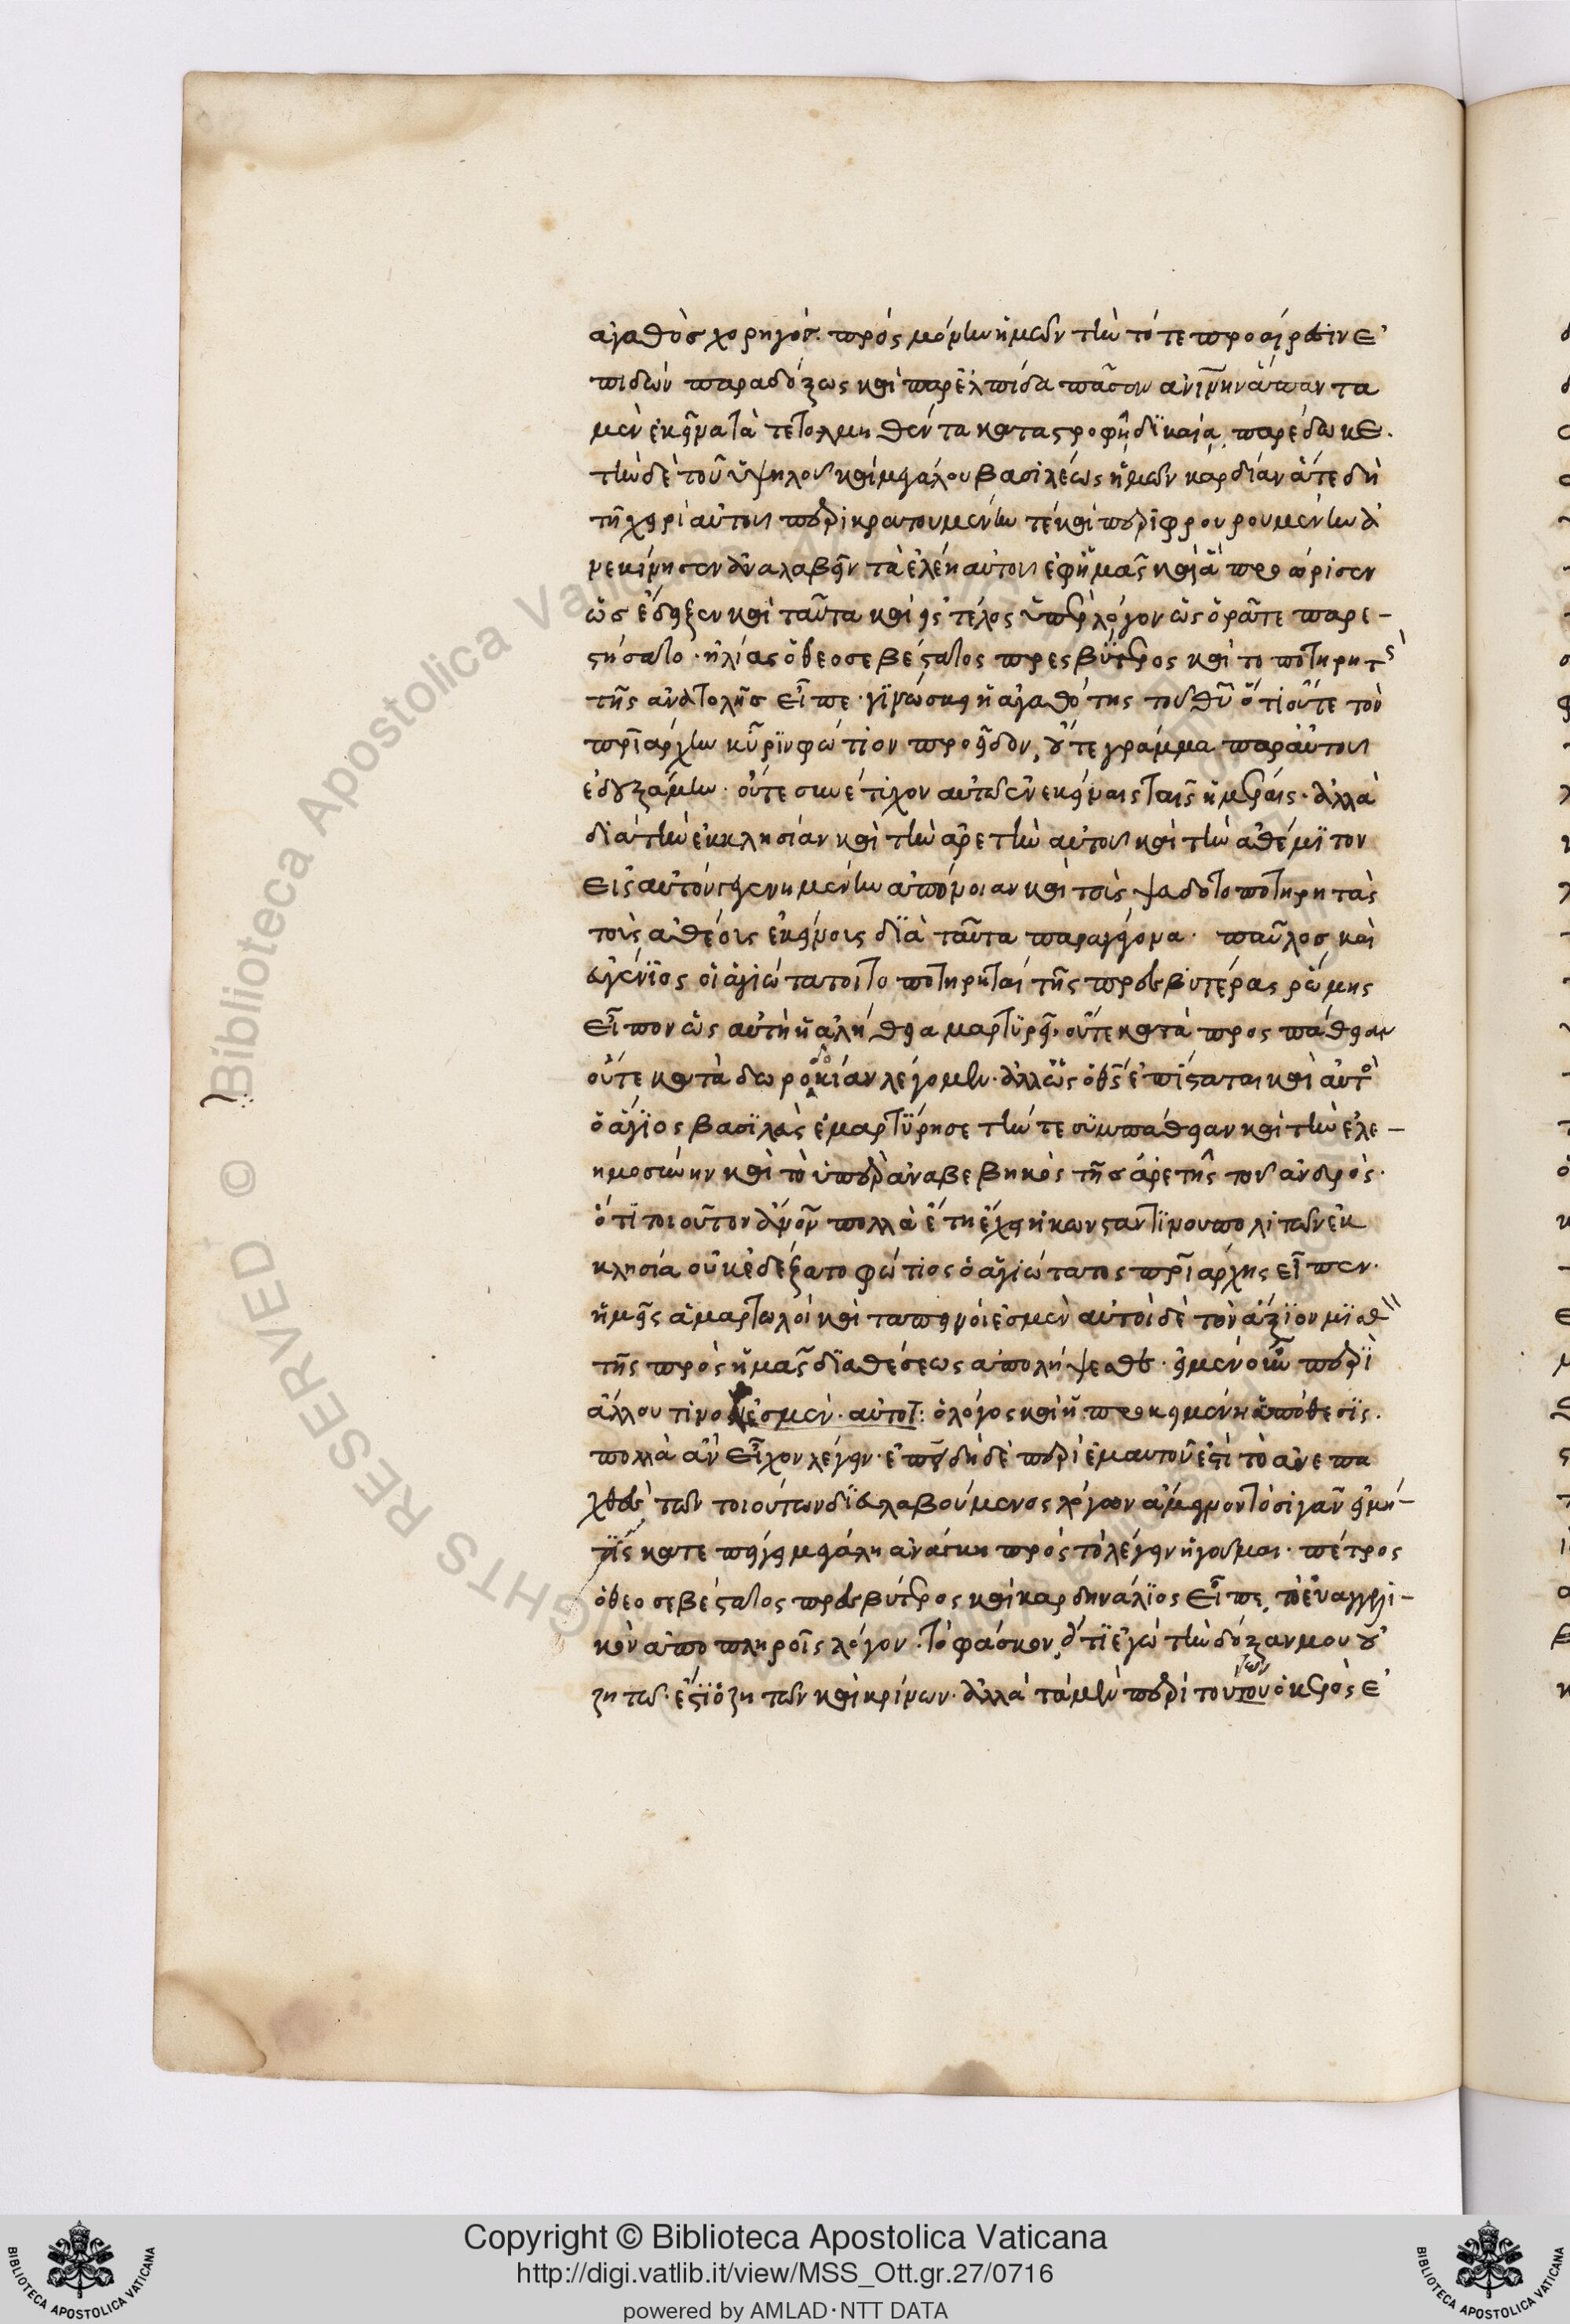 ἀγαθὸσ χορηγός. πρός μόνην ἡμῶν τὴν τότε προαίρεσιν ἐ
πιδὼν παραδόξως καὶ παρ' ἐλπίδα πᾶσιν ἀνίμην ἅπαν τα
μὲν ἐκεῖνα τὰ τετολμηθέντα καταστροφῆ δϊκαία παρέδωκε.
τὴν δὲ τοῦ ὑψηλοῦ καὶ μεγάλου βασιλέως ἡμῶν καρδίαν ἅτε δὴ
τῆ χειρὶ αὐτοῦ περικρατουμένην τέ καὶ περιφρουρουμένην ἀ
νεκίνησεν ἀναλαβεῖν τὰ ἐλέη αὐτοῦ ἐφ' ἡμᾶς καὶ ἃ προώρισεν
ὡσ ἔδειξεν καὶ ταῦτα καὶ εἰς τέλος ὑπὲρ λόγον ὡς ὁρᾶτε παρε-
στήσατο. ἠλίας ὁ θεοσεβέστατος πρεσβύτερος καὶ τοποτηρητς
τῆς ἀνατολῆσ εἶπε. γϊνώσκει ἡ ἀγαθότης τοῦ θῦ ὅτι οὔτε τὸν
πρϊάρχην κύριν φώτιον προεῖδον, οὔτε γράμμα παρ' αὐτοῦ
ἐδεξάμην. οὔτε συνέτυχον αὐτῶ ἐν ἐκείναις ταῖς ἡμέραις. ἀλλὰ
διὰ τὴν ἐκκλησίαν καὶ τὴν ἀρετὴν αὐτοῦ καὶ τὴν ἀθέμϊτον
εἰς αὐτόν γεγενημένην ἀπόνοιαν καὶ τοὺς ψευδοτοποτηρητὰς
τοὺς ἀθέους ἐκείνους δϊὰ ταῦτα παραγέγονα. παῦλοσ καὶ
εὐγένϊος οἱ ἁγιώτατοι τοποτηρηταὶ τῆς πρεσβυτέρας ῥώμης
εἶπον ὡς αὐτὴ ἡ ἀλήθεια μαρτϋρεῖ, οὔτε κατὰ προσπάθειαν
οὔτε κατὰ δωροδοκίαν λέγομεν. ἀλλ' ὡς ὁ θς ἐπίσταται καὶ αὐτὸς
ὁ ἅγϊος βασϊλεὺς ἐμαρτϋρησε τήν τε συμπάθειαν καὶ τὴν ἐλε-
ημοσύνην καὶ τὸ ὑπεραναβεβηκὸς τῆσ ἀρετῆς τοῦ ἀνδρός.
ὅτϊ τοιοῦτον ἄνον πολλὰ ἔτη ἔχει ἡ κωνσταντϊνουπολιτῶν ἐκ
κλησία οὐκ ἐδέξατο φώτιος ὁ ἁγιώτατος πρϊάρχης εἶπεν.
ἡμεῖς ἁμαρτωλοὶ καὶ ταπεινοί ἐσμεν αὐτοὶ δὲ τὸν ἄξϊον μϊσθ
τῆς πρὸς ἡμᾶς δϊαθέσεως ἀπολήψεσθε. εἰ μὲν οὖν περὶ
ἄλλου τινο ἐσμεν. αὐτοῖ: ὁ λόγος καὶ ἡ προκειμένη ὑπόθεσϊς.
πολλὰ ἂν εἶχον λέγειν. ἐπεὶ δὴ δὲ περὶ ἐμαυτοῦ ἐστὶ τὸ ἀνεπα
χθὲς τῶν τοιούτων δϊευλαβούμενος λόγων ἄμεινον τὸ σιγᾶν εἰ μή-
τϊς κατεπείγει μεγάλη ἀνάγκη πρὸς τὸ λέγειν ἡγοῦμαι. πέτρος
ὁ θεοσεβέστατος πρεσβύτερος καὶ καρδηνάλϊος εἶπε, τὸ εὐαγγελι-
κὸν ἀποπληροῖς λόγον. τὸ φάσκον, ὅτϊ ἐγὼ τὴν δόξαν μου οὐ
ζητῶ. ἔστϊ ὁ ζητῶν καὶ κρίνων. ἀλλὰ τὰ μὲν περὶ τούτου των ὁ κερὸς ἐ
Copyright © Biblioteca Apostolica Vaticana
http://digi.vatlib.it/view/MSS_Ott.gr.27/0716
powered by AMLAD·NTT DATA